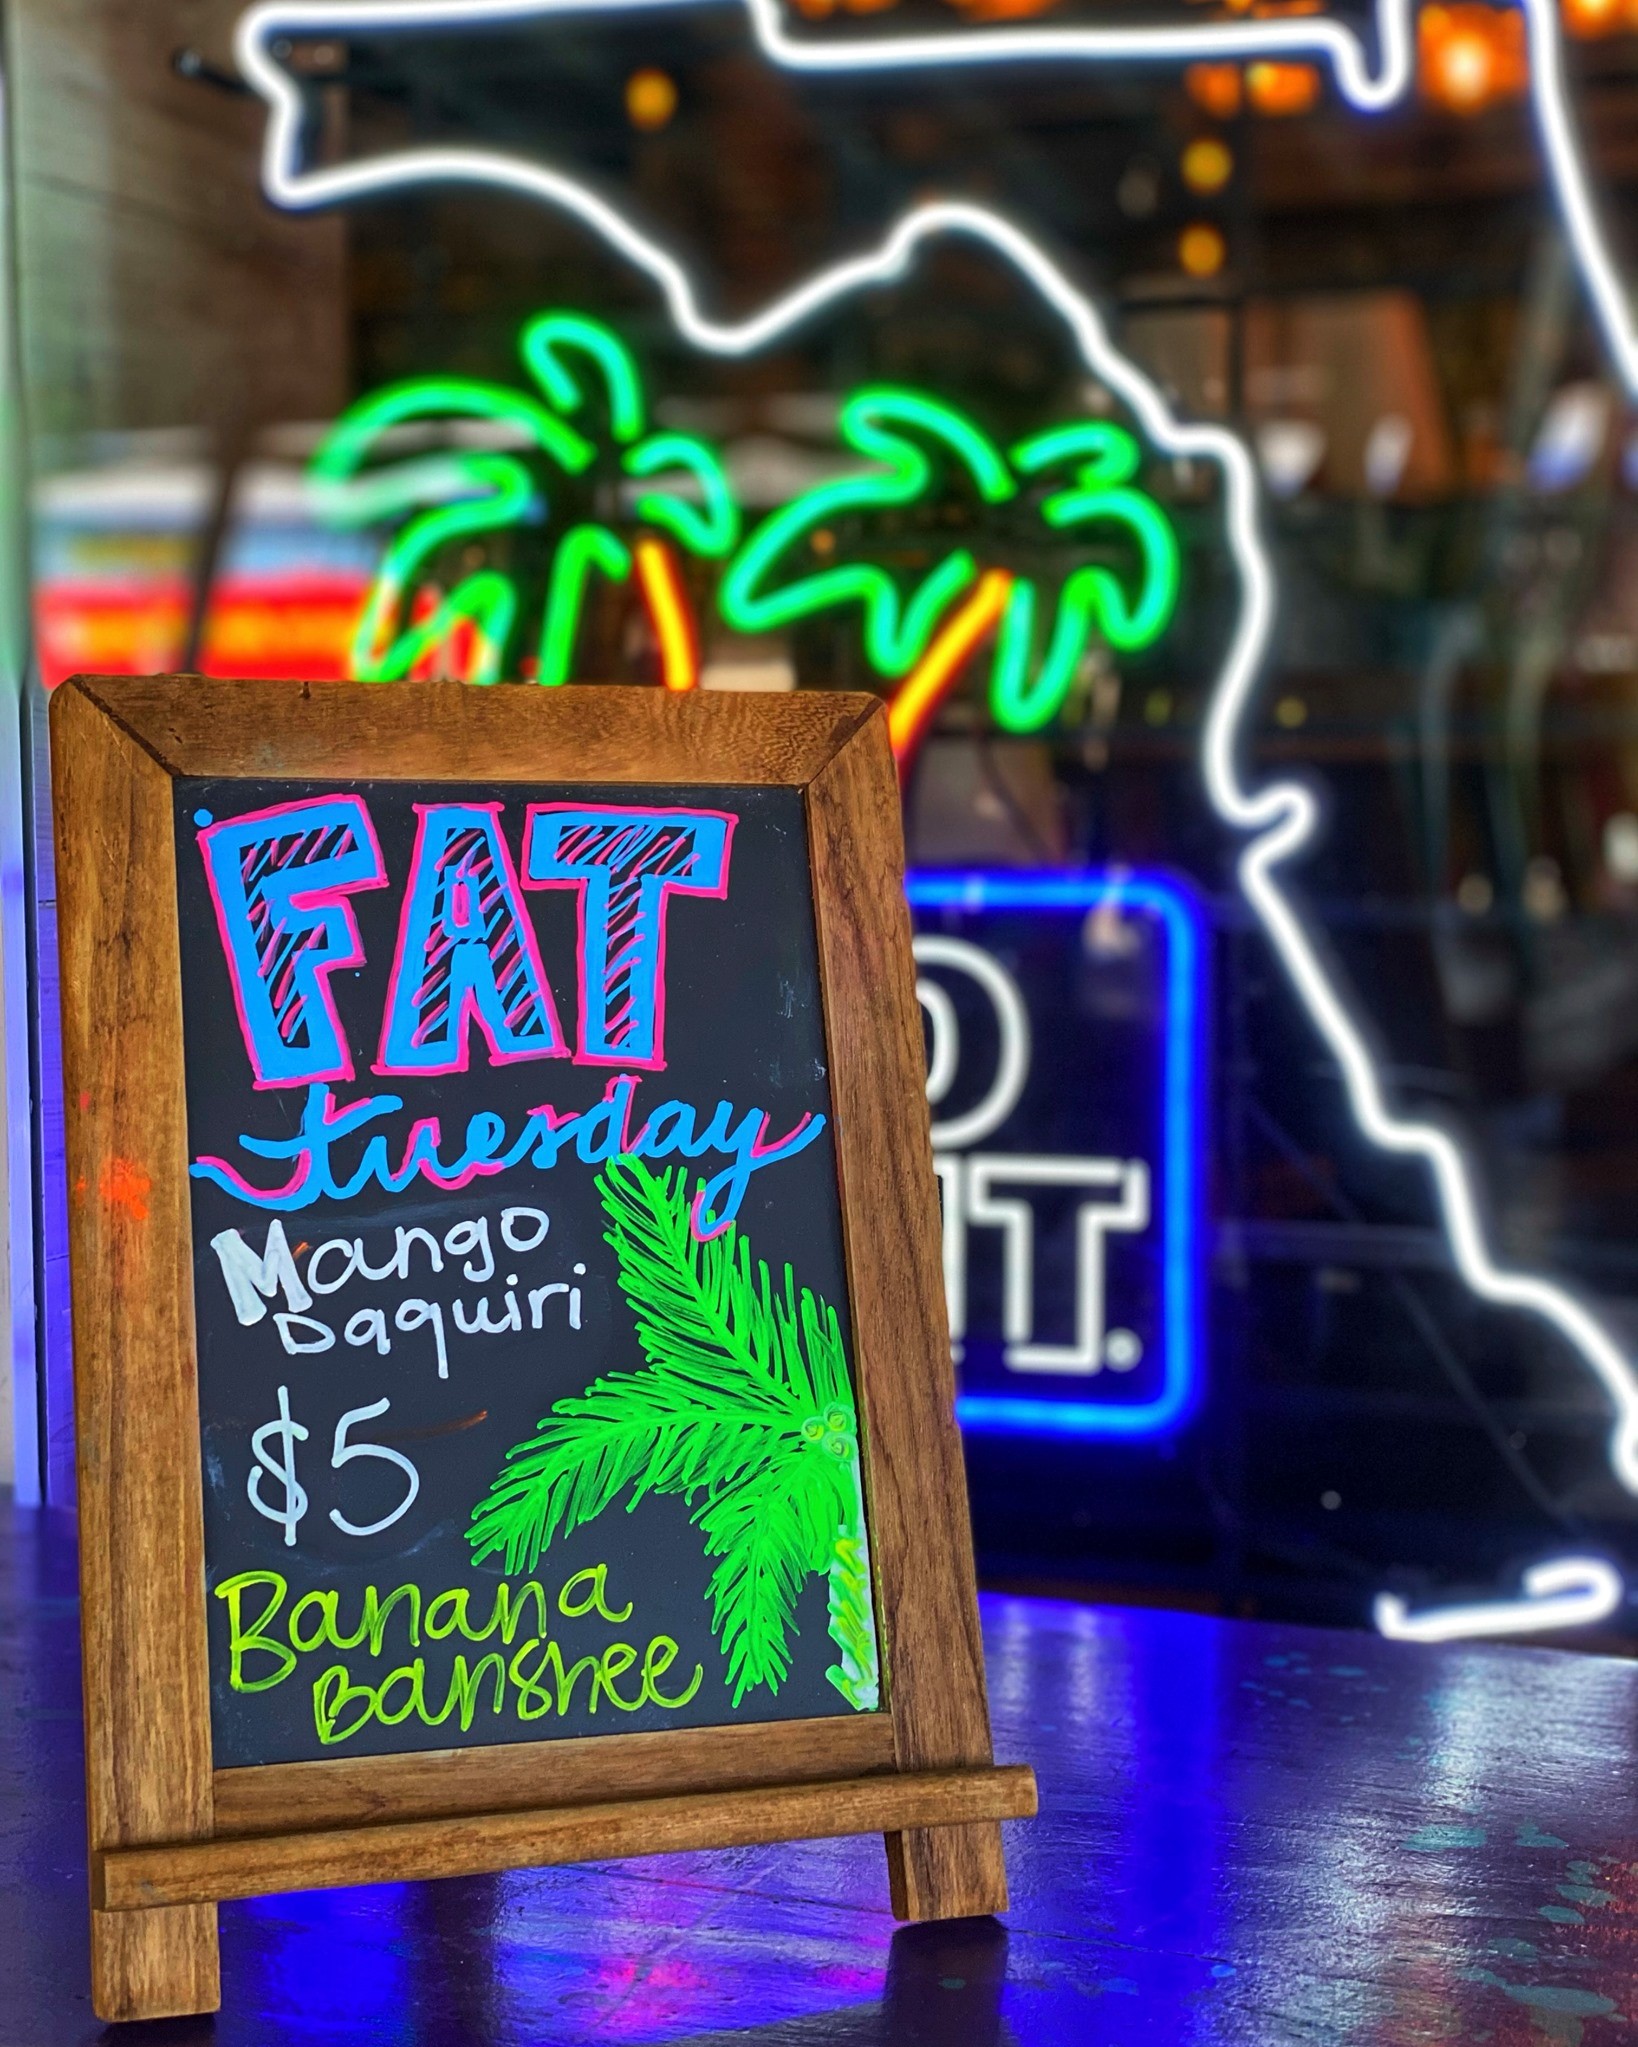 FAT
tuesday
Mango
Daquiri
$5
Banana
Banshee